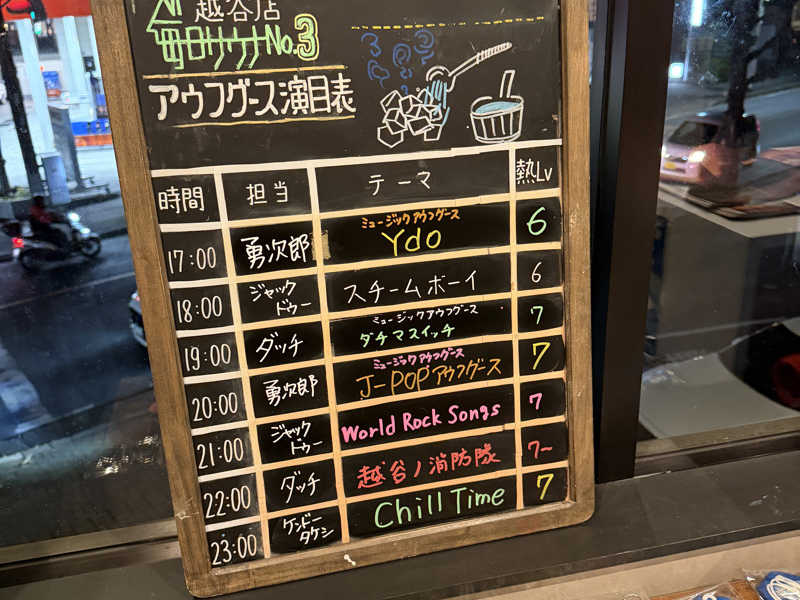 越谷店
毎日サウナNo.3
アウフグース演目表
時間 担当 テーマ 熱Lv
17:00 勇次郎 ミュージックアウフグース Ydo 6
18:00 ジャックドゥー スチームボーイ 6
19:00 ダッチ ミュージックアウフグース ダチマスイッチ 7
20:00 勇次郎 ミュージックアウフグース J-POPアウフグース 7
21:00 ジャックドゥー World Rock Songs 7
22:00 ダッチ 越谷ノ消防隊 7~
23:00 ケンドータケシ Chill Time 7